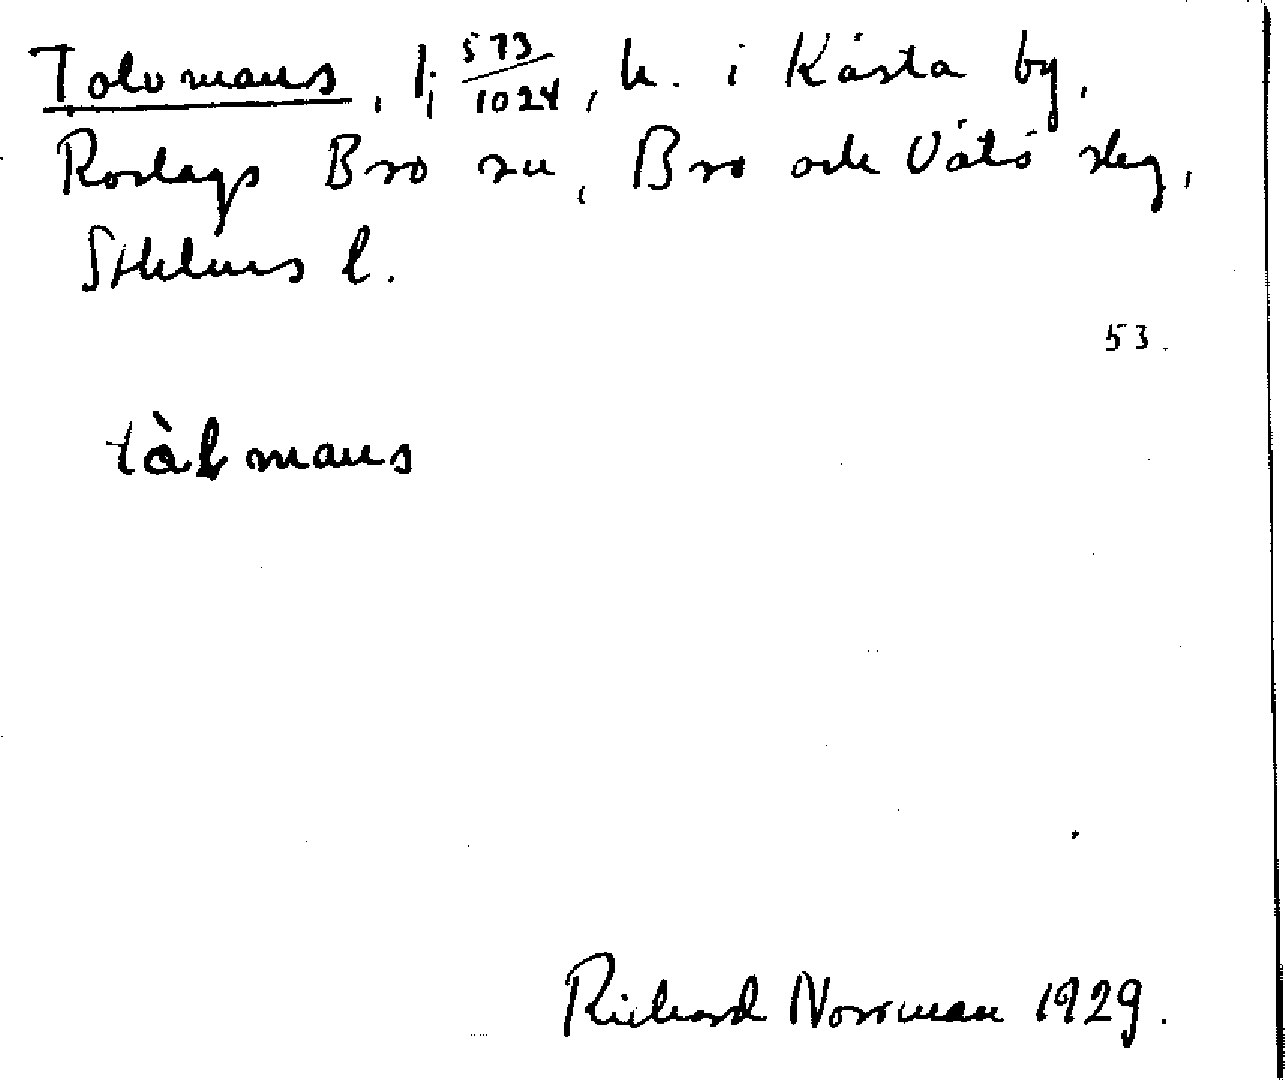 Tolvmans, 1; 573/1024, h. i Kåsta by,
Roslags Bro sn, Bro och Vätö skg,
Sthlms l.
53.
tàlmans
Richard Norrman 1929.